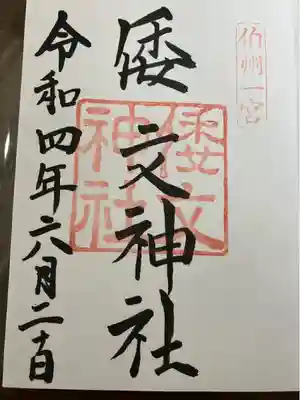 伯州一宮
倭文神社
倭文神社
令和四年六月二十日